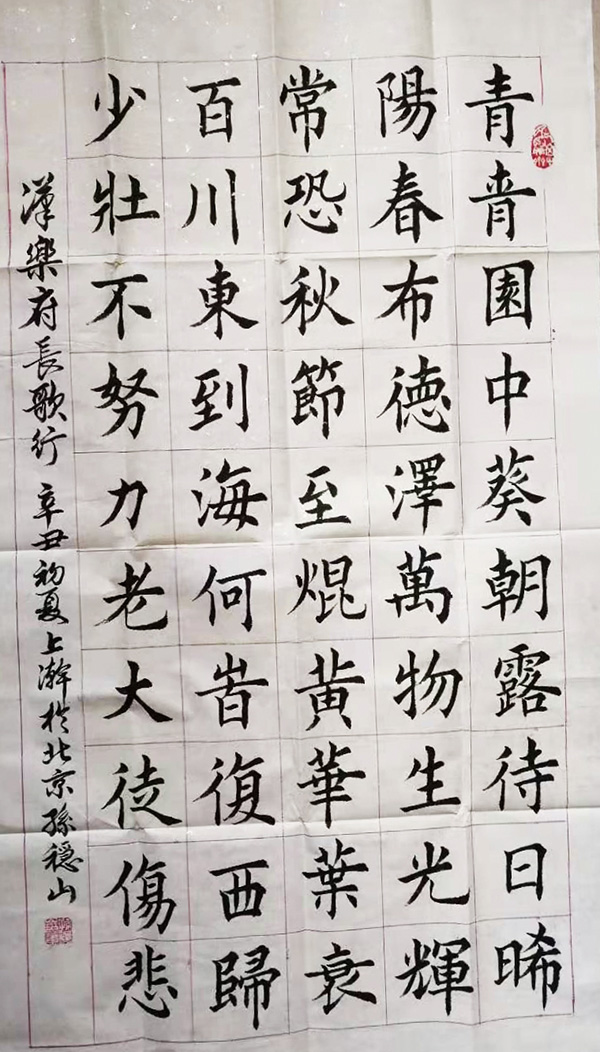 青青園中葵朝露待日晞
陽春布德澤萬物生光輝
常恐秋節至焜黃華葉衰
百川東到海何旹復西歸
少壯不努力老大徒傷悲
漢樂府長歌行 辛丑初夏上澣於北京孫穩山